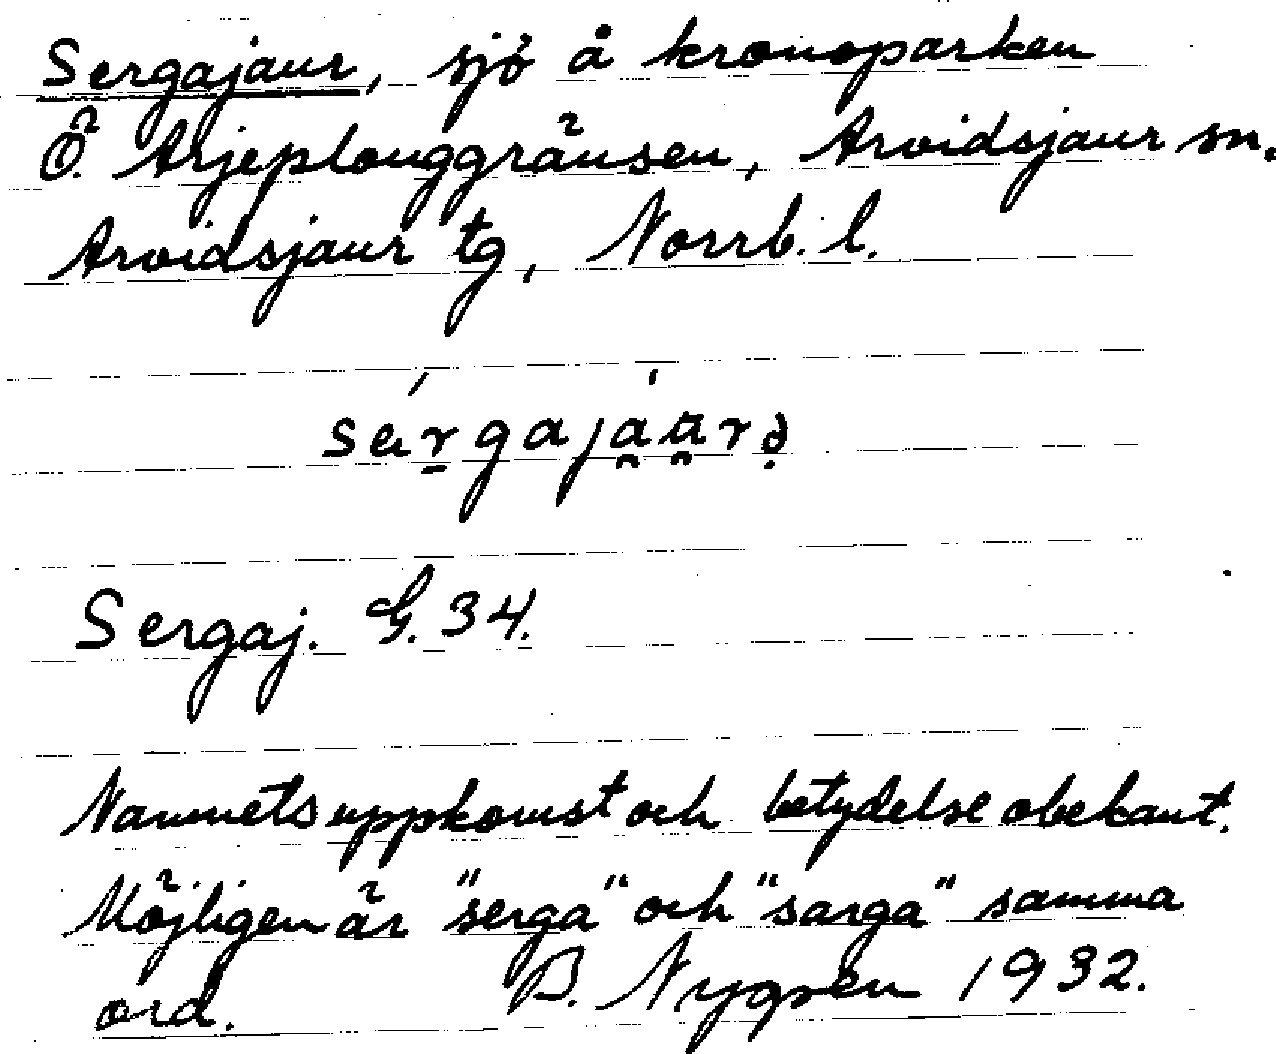 Sergajaur, sjö å kronoparken
Ö. Arjeplouggränsen, Arvidsjaur sn.
Arvidsjaur tg, Norrb. l.
særgajaurə
Sergaj. G. 34.
Namnets uppkomst och betydelse obekant.
Möjligen är "serga" och "sarga" samma
ord. B. Nygren 1932.